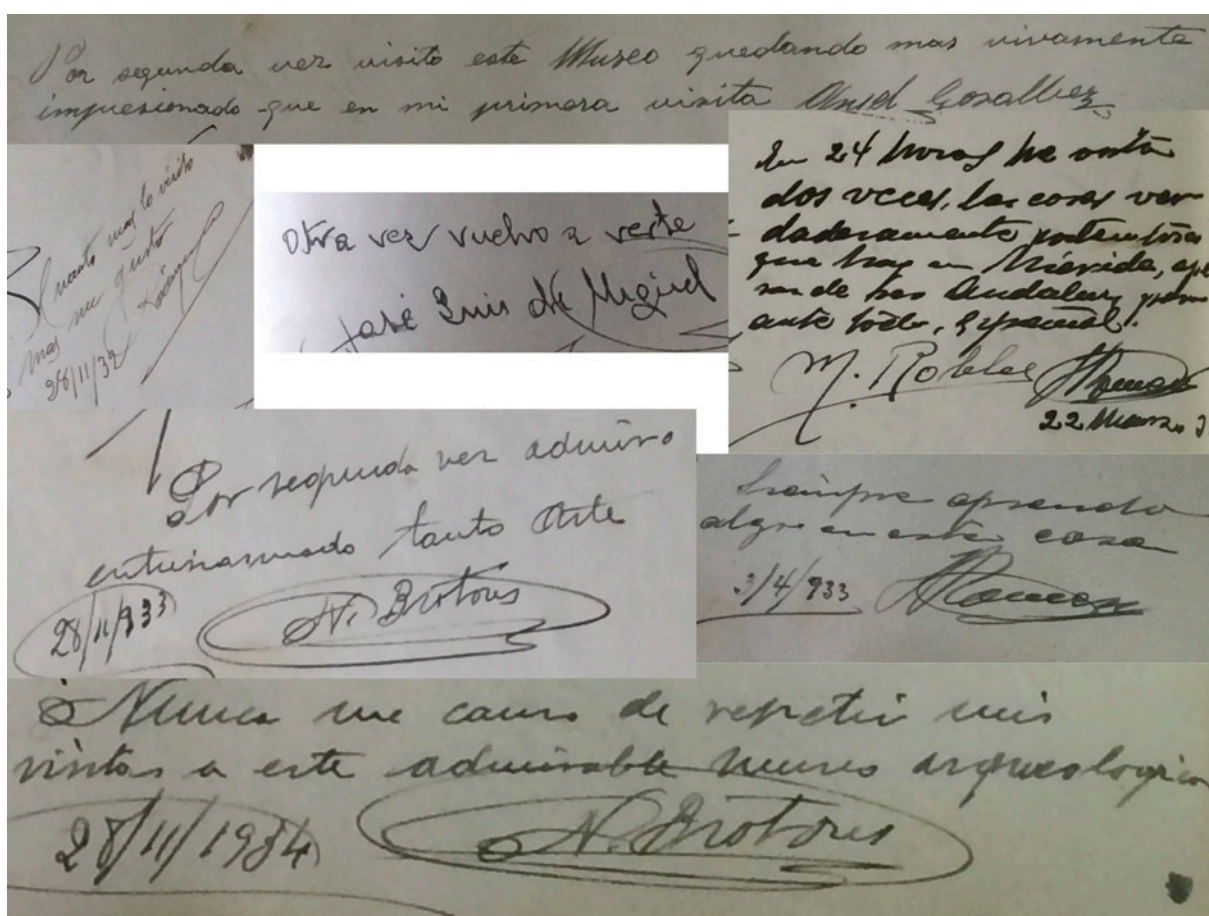 Por segunda vez visito este Museo quedando mas vivamente
impresionado que en mi primera visita Angel Gosalbez
Cuanto mas lo visito
mas me gusta
28/11/32
Otra vez vuelvo a verte
José Luis de Miguel
En 24 horas he visto
dos veces, las cosas ver
daderamente portentosas
que hay en Mérida, ape
sar de ser Andaluz, pero
ante todo, Español.
M. Robles
22 Marzo
Por segunda vez admiro
entusiasmado tanto Arte
28/11/933
N. Brotons
Siempre aprendo
algo en esta casa
3/4/933
Nunca me canso de repetir mis
visitas a este admirable museo arqueologico
28/11/1934
N. Brotons